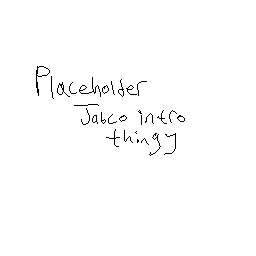 Placeholder
Jabco intro
thingy